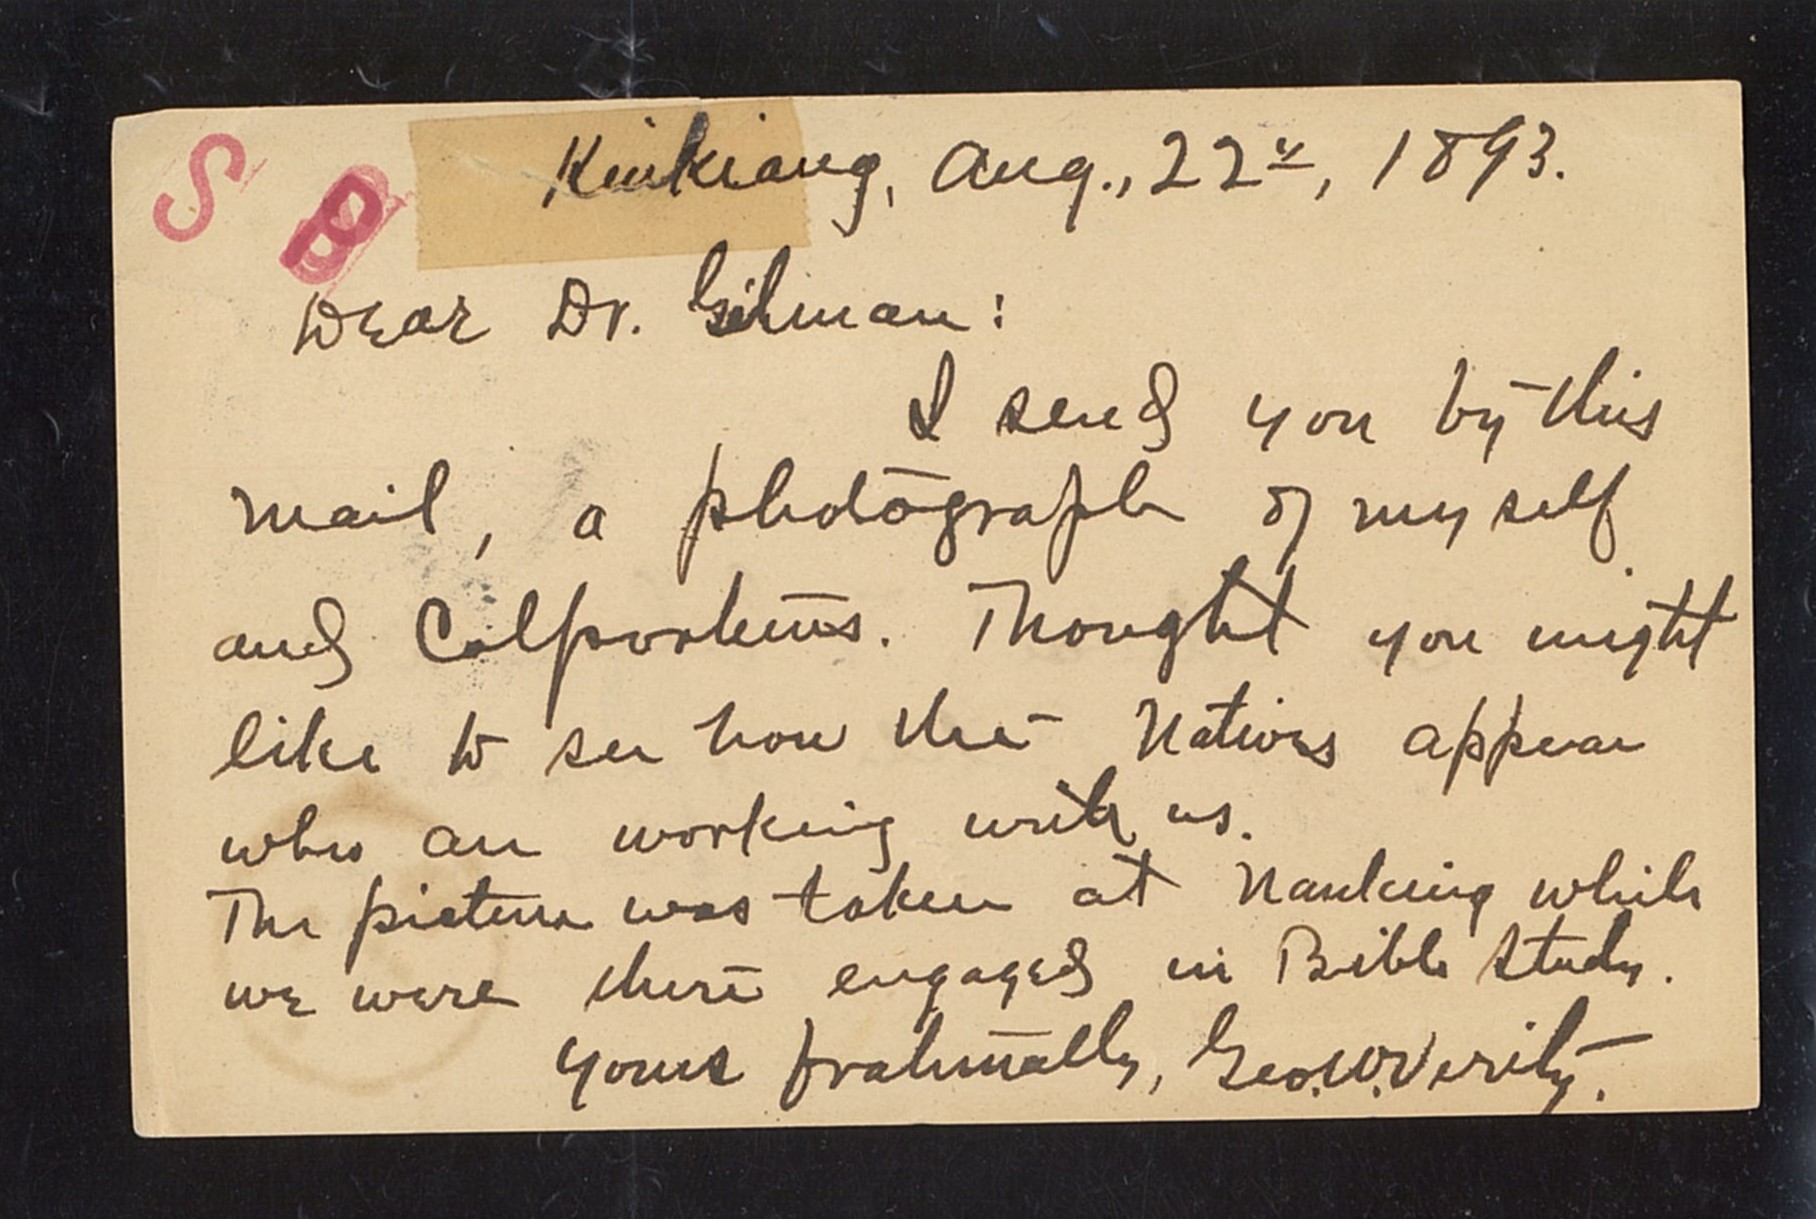 S P
Kiukiang, Aug., 22nd, 1893.
Dear Dr. Gilman:
I send you by this
mail, a photograph of myself
and Colporteurs. Thought you might
like to see how the Natives appear
who are working with us.
The picture was taken at Nanking while
we were there engaged in Bible Study.
Yours fraternally, Geo. W. Verity.